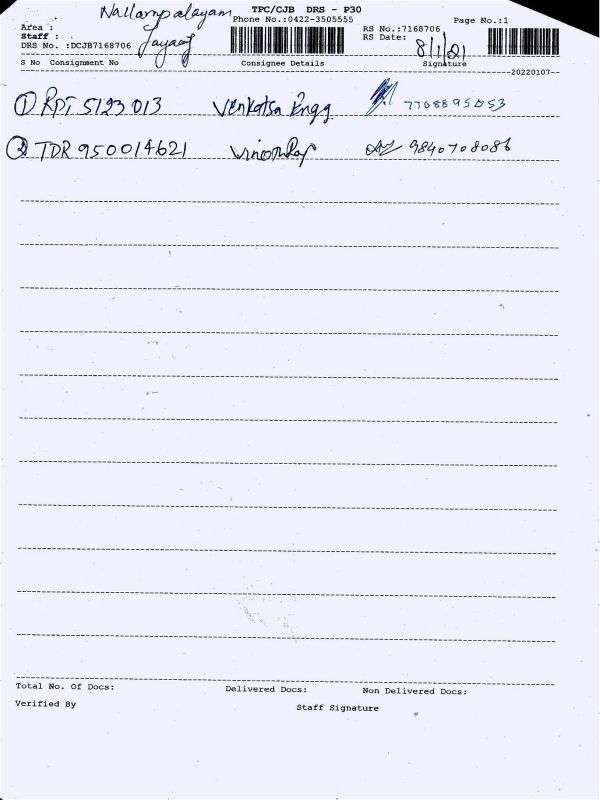 Nallampalayam TPC/CJB DRS - P30
Area : Phone No.:0422-3505555 Page No.:1
Staff : RS No.:7168706
DRS No. :DCJB7168706 RS Date: 8/1/21
S No Consignment No Consignee Details Signature
20220107
① RPT 5123 013 Venkatsa Engg 7708895053
② TDR 950014621 9840708086
Total No. Of Docs: Delivered Docs: Non Delivered Docs:
Verified By Staff Signature